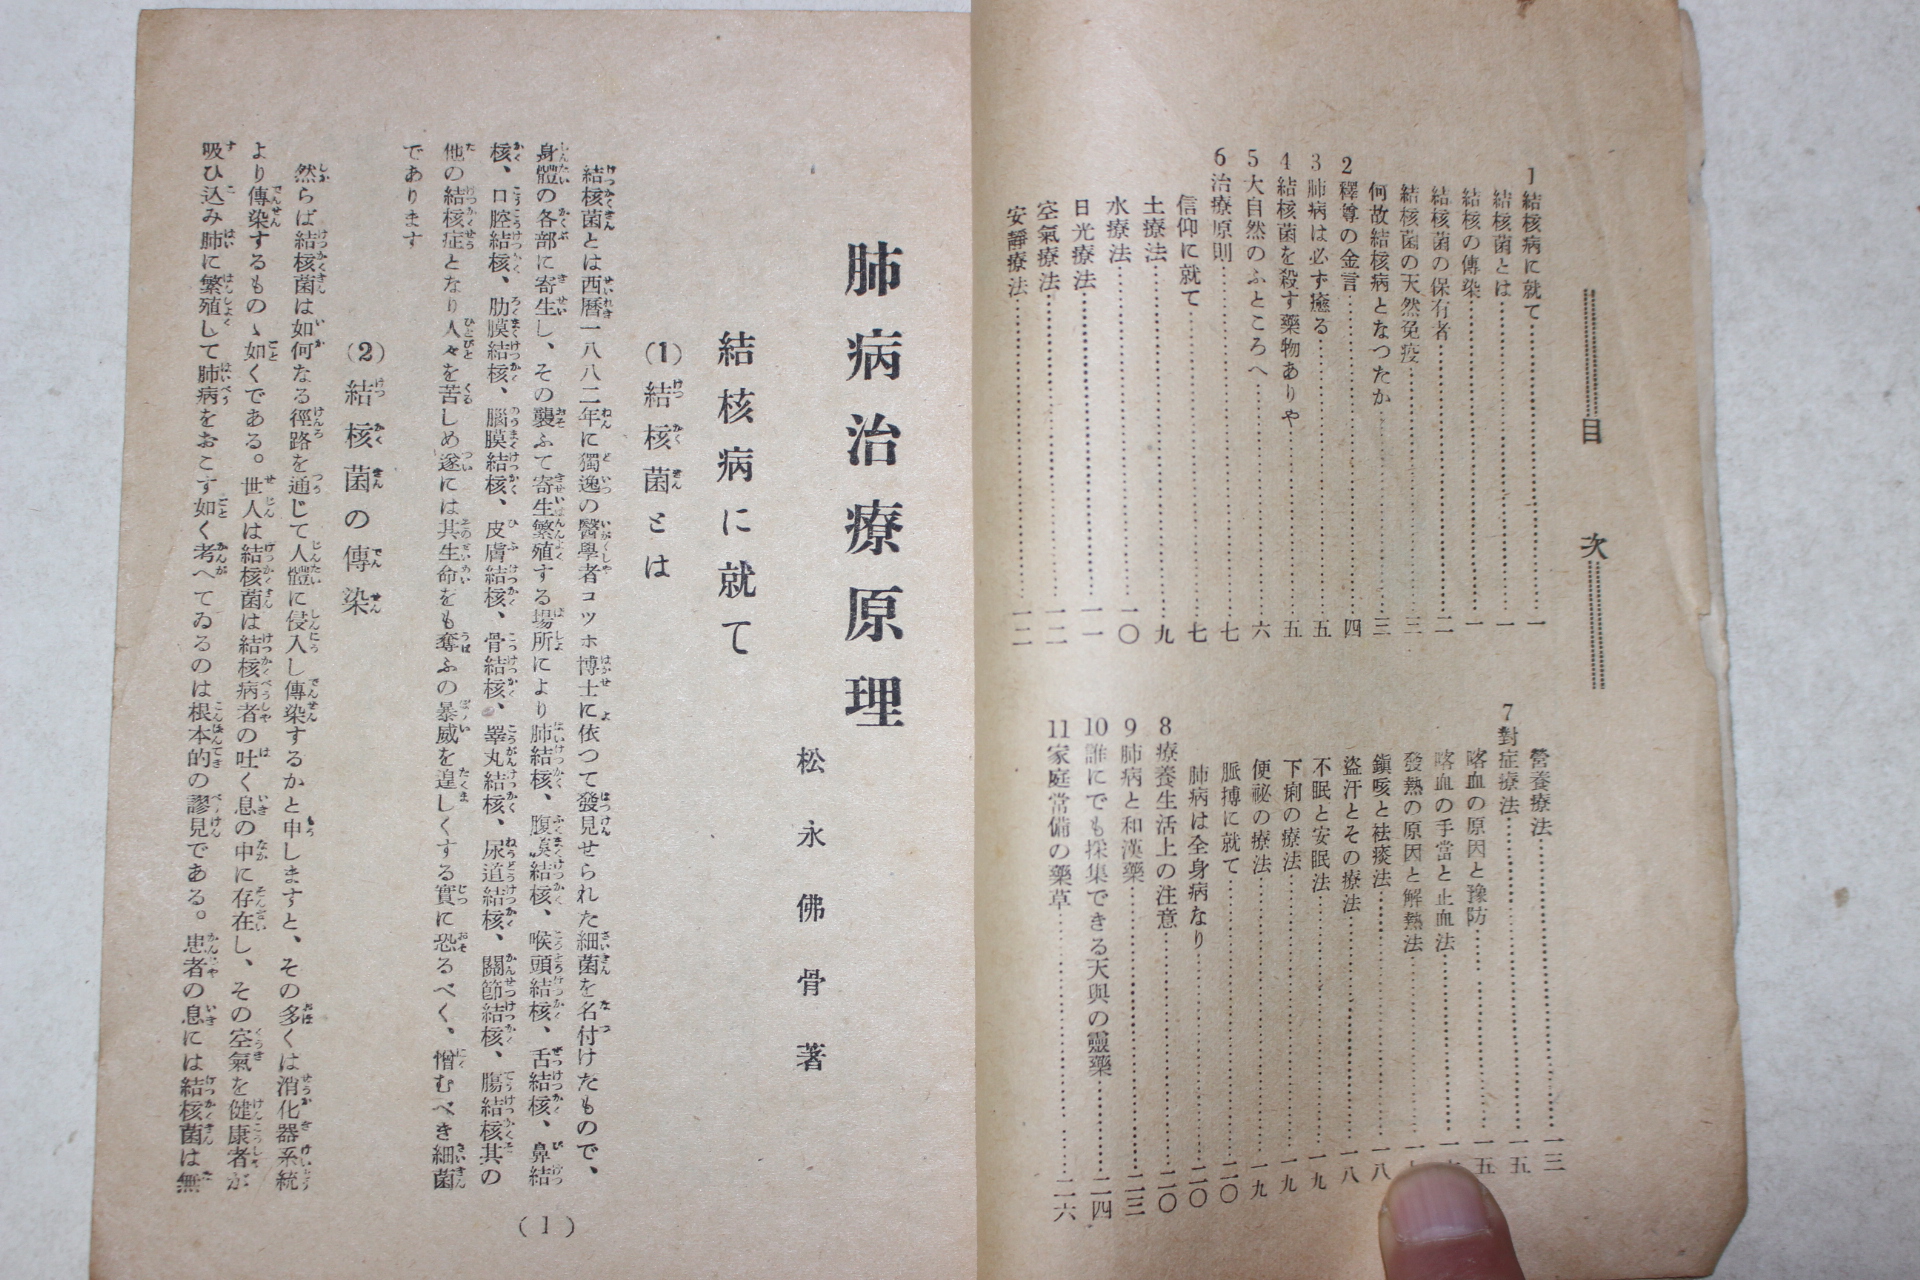 目次
1 結核病に就て……一
結核菌とは……一
結核の傳染……一
結核菌の保有者……二
結核菌の天然免疫……三
何故結核病となつたか……三
2 釋尊の金言……四
3 肺病は必ず癒る……五
4 結核菌を殺す藥物ありや……五
5 大自然のふところへ……六
6 治療原則……七
信仰に就て……七
土療法……九
水療法……一〇
日光療法……一一
空氣療法……一二
安靜療法……一二
營養療法……一三
7 對症療法……一五
喀血の原因と豫防……一五
喀血の手當と止血法……
發熱の原因と解熱法……
鎭咳と袪痰法……一八
盜汗とその療法……一八
不眠と安眠法……一九
下痢の療法……一九
便祕の療法……一九
脈搏に就て……二〇
肺病は全身病なり……二〇
8 療養生活上の注意……二〇
9 肺病と和漢藥……二三
10 誰にでも採集できる天與の靈藥……二四
11 家庭常備の藥草……二六
肺病治療原理
松永佛骨著
結核病に就て
(1)結核菌とは
結核菌とは西曆一八八二年に獨逸の醫學者コツホ博士に依つて發見せられた細菌を名付けたもので、
身體の各部に寄生し、その襲ふて寄生繁殖する場所により肺結核、腹膜結核、喉頭結核、舌結核、鼻結
核、口腔結核、肋膜結核、腦膜結核、皮膚結核、骨結核、睾丸結核、尿道結核、關節結核、腸結核其の
他の結核症となり人々を苦しめ遂には其生命をも奪ふの暴威を逞しくする實に恐るべく、憎むべき細菌
であります
(2)結核菌の傳染
然らば結核菌は如何なる徑路を通じて人體に侵入し傳染するかと申しますと、その多くは消化器系統
より傳染するものゝ如くである。世人は結核菌は結核病者の吐く息の中に存在し、その空氣を健康者が
吸ひ込み肺に繁殖して肺病をおこす如く考へてゐるのは根本的の謬見である。患者の息には結核菌は無
(1)